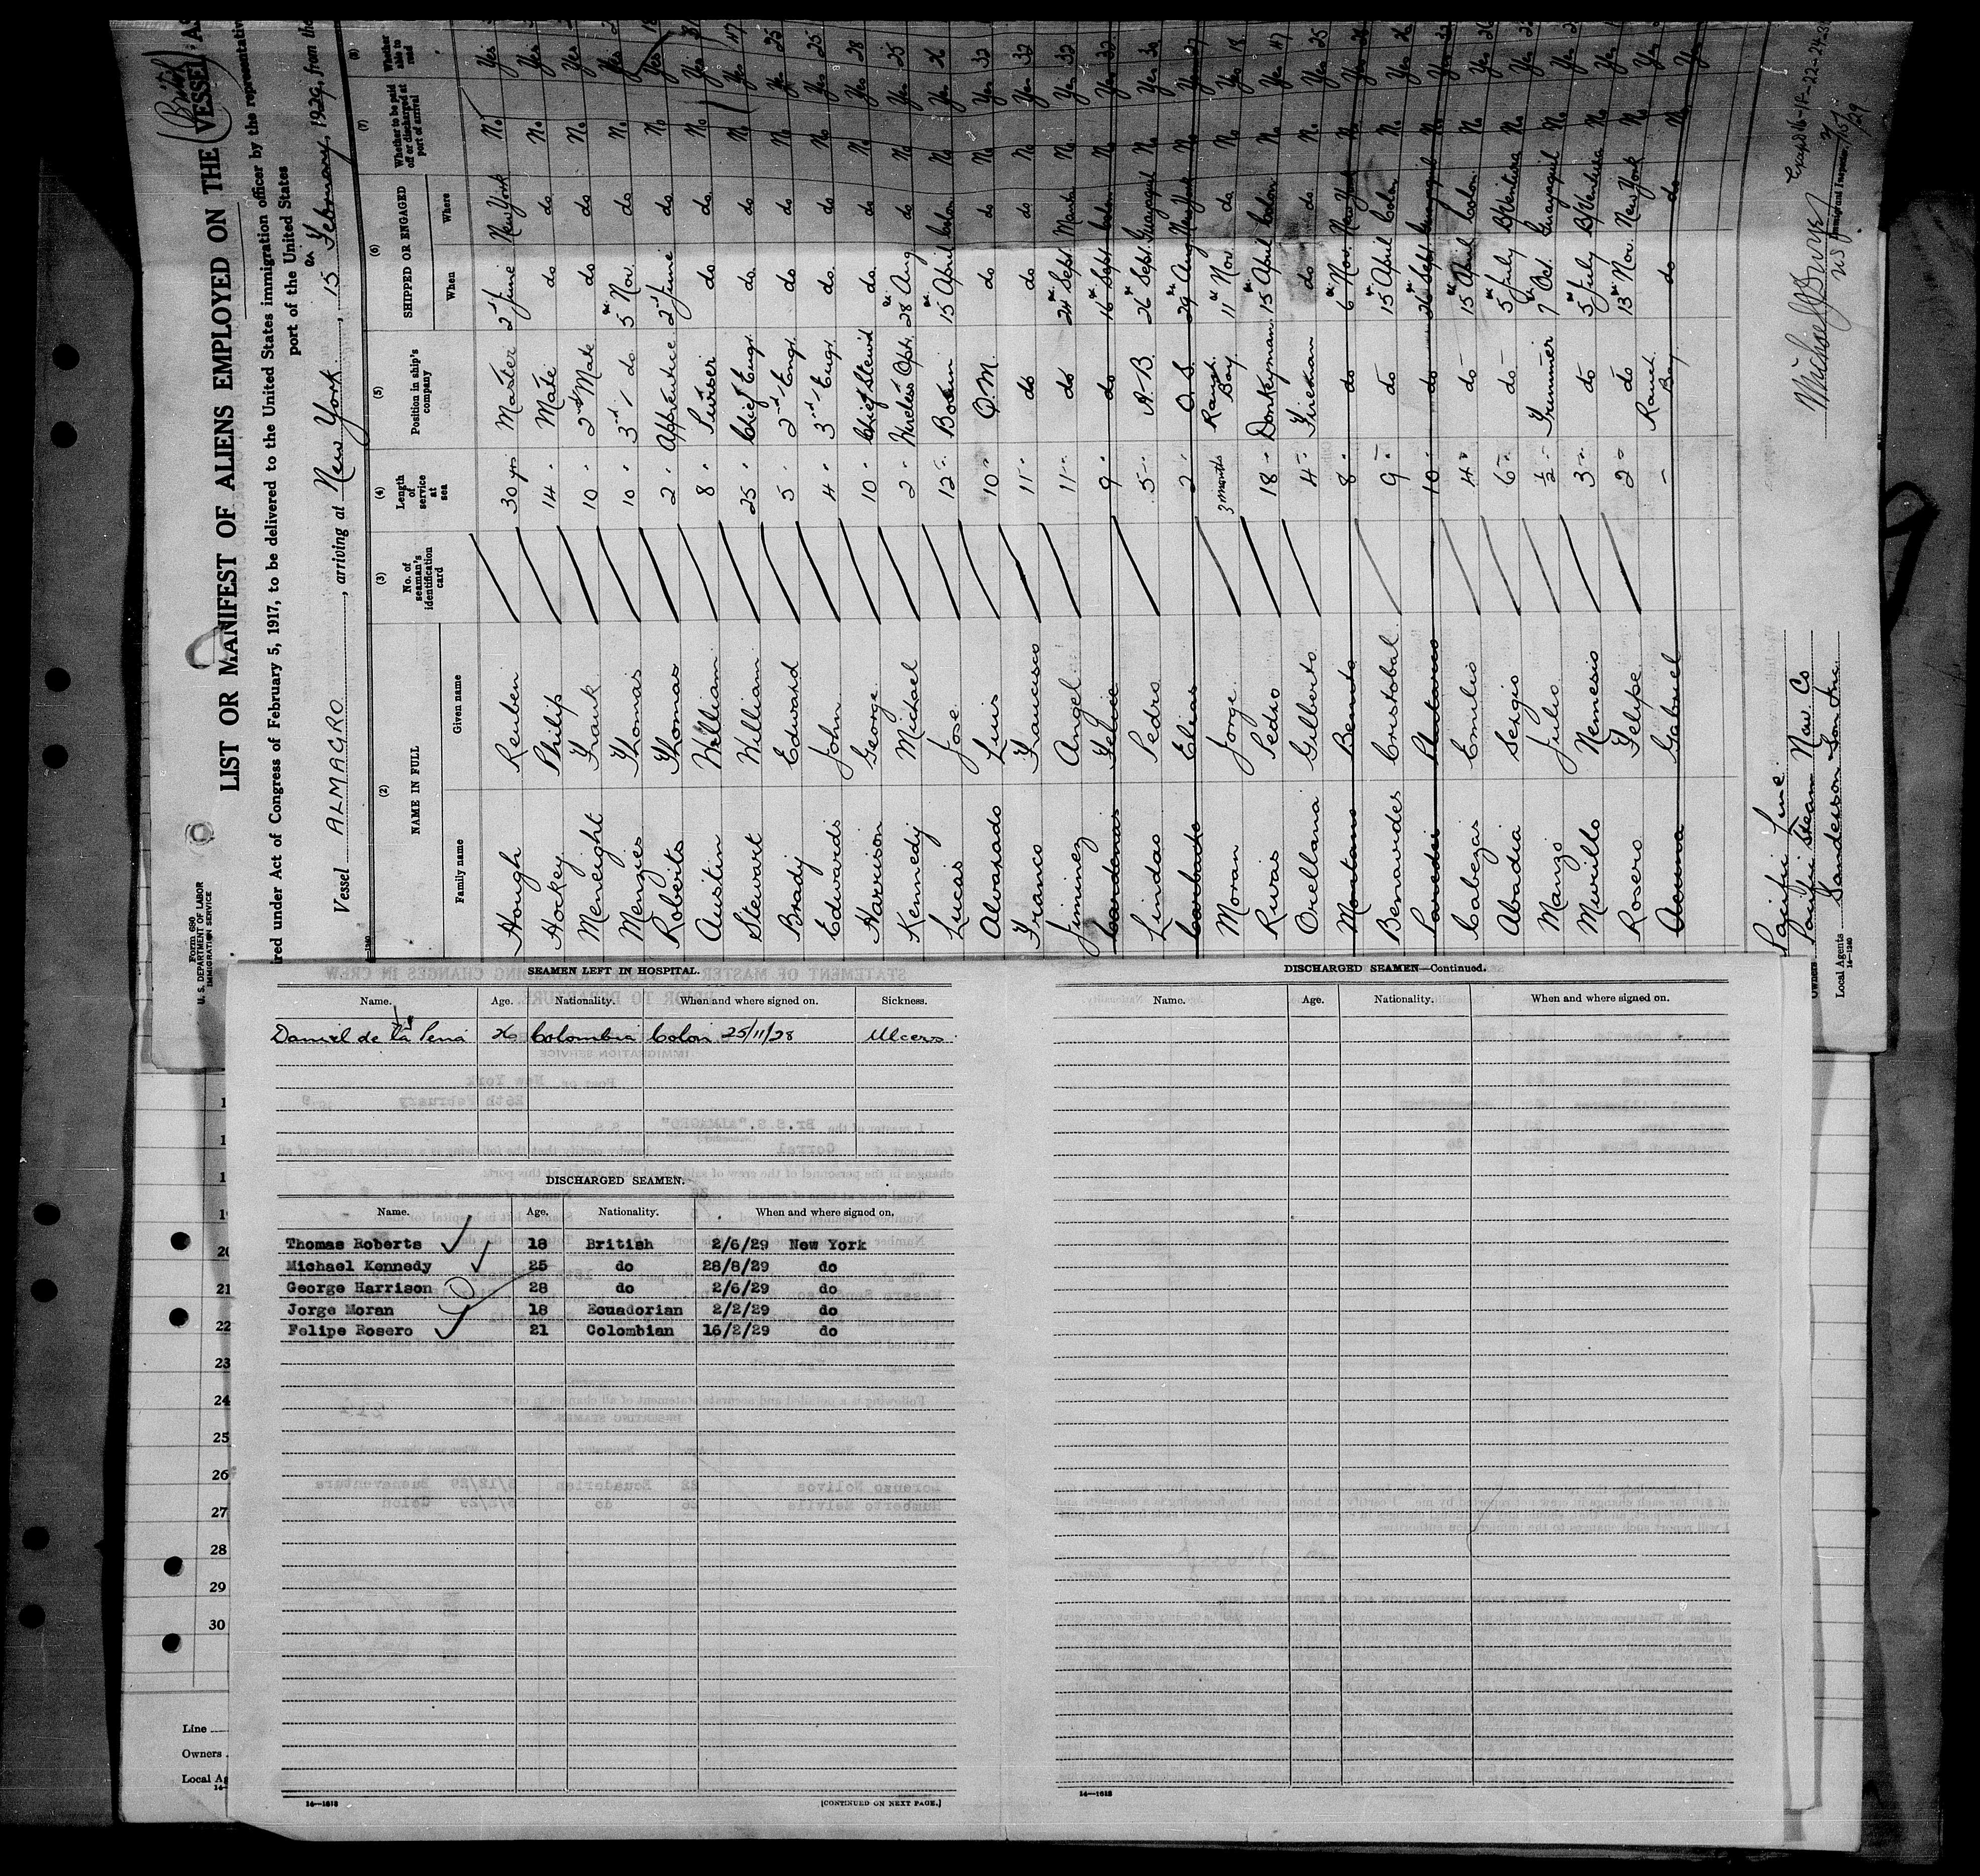 Form 680
U. S. DEPARTMENT OF LABOR
IMMIGRATION SERVICE
(British)
LIST OR MANIFEST OF ALIENS EMPLOYED ON THE VESSEL AS
ired under Act of Congress of February 5, 1917, to be delivered to the United States immigration officer by the representative
port of the United States
Vessel ALMAGRO, arriving at New York, 15th February, 1929, from the
(2) (3) (4) (5) (6) (7) (8)
NAME IN FULL No. of seaman's identification card Length of service at sea Position in ship's company SHIPPED OR ENGAGED Whether to be paid off or discharged at port of arrival Whether able to read
Family name Given name When Where
Hough Reuben 30 yrs Master 2nd June New York No Yes
Hockey Philip 14 " Mate do do No Yes
Meneight Frank 10 " 2nd Mate do do No Yes
Menzies Thomas 10 " 3rd do 5th Nov. do No Yes
Roberts Thomas 2 " Apprentice 2nd June do No Yes
Austin William 8 " Purser do do No Yes 31
Stewart William 25 " Chief Engr do do No Yes 47
Brady Edward 5 " 2nd Engr do do No Yes 25
Edwards John 4 " 3rd Engr do do No Yes 25
Harrison George 10 " Chief Stew'd do do No Yes 28
Kennedy Michael 2 " Wireless Optr. 28th Aug do No Yes 25
Lucas Jose 12 " Bosun 15th April Colon No Yes 26
Alvarado Luis 10 " Q.M. do do No Yes 32
Franco Francisco 11 " do do do No Yes 32
Jiminez Angel 11 " do 24th Sept. Manta No Yes 32
Cardenas Felicie 9 " do 16th Sept Colon No Yes 32
Lindao Pedro 5 " A.B. 26th Sept. Guayaquil No Yes 30
Carbado Elias 2 " O.S. 29th Aug New York No Yes 27
Moran Jorge 3 months Ranch Boy 11th Nov. do No Yes 18
Rivas Pedro 18 " Donkeyman 15th April Colon No Yes 47
Orellana Gilberto 4 " Fireman do do No Yes 25
Montano Benito 8 " do 6th Nov. New York No Yes
Benavides Cristobal 9 " do 15th April Colon No Yes 26
Paredes Plutarco 10 " do 26th Sept Guayaquil No Yes
Cabezas Emilio 4 " do 15th April Colon No Yes
Abadia Sergio 6 " do 5th July B/Ventura No Yes
Manzo Julio ½ " Trimmer 7th Oct. Guayaquil No Yes
Murillo Nemesio 3 " do 5th July B/Ventura No Yes
Rosero Felipe 2 " do 13th Nov. New York No Yes
Acuna Gabriel - Ranch Boy do do No Yes
Pacific Line
Owners Pacific Steam Nav. Co
Local Agents Sanderson & Son Inc.
14—1240
Immigrant Inspector
SEAMEN LEFT IN HOSPITAL.
Name. Age. Nationality. When and where signed on. Sickness.
Daniel de la Pena 26 Colombia Colon 25/11/28 Ulcers
DISCHARGED SEAMEN.
Name. Age. Nationality. When and where signed on.
Thomas Roberts 18 British 2/6/29 New York
Michael Kennedy 25 do 28/8/29 do
George Harrison 28 do 2/6/29 do
Jorge Moran 18 Ecuadorian 2/2/29 do
Felipe Rosero 21 Colombian 16/2/29 do
14—1613
[CONTINUED ON NEXT PAGE.]
DISCHARGED SEAMEN—Continued.
Name. Age. Nationality. When and where signed on.
14—1613
20
21
22
23
24
25
26
27
28
29
30
Line
Owners
Local Ag